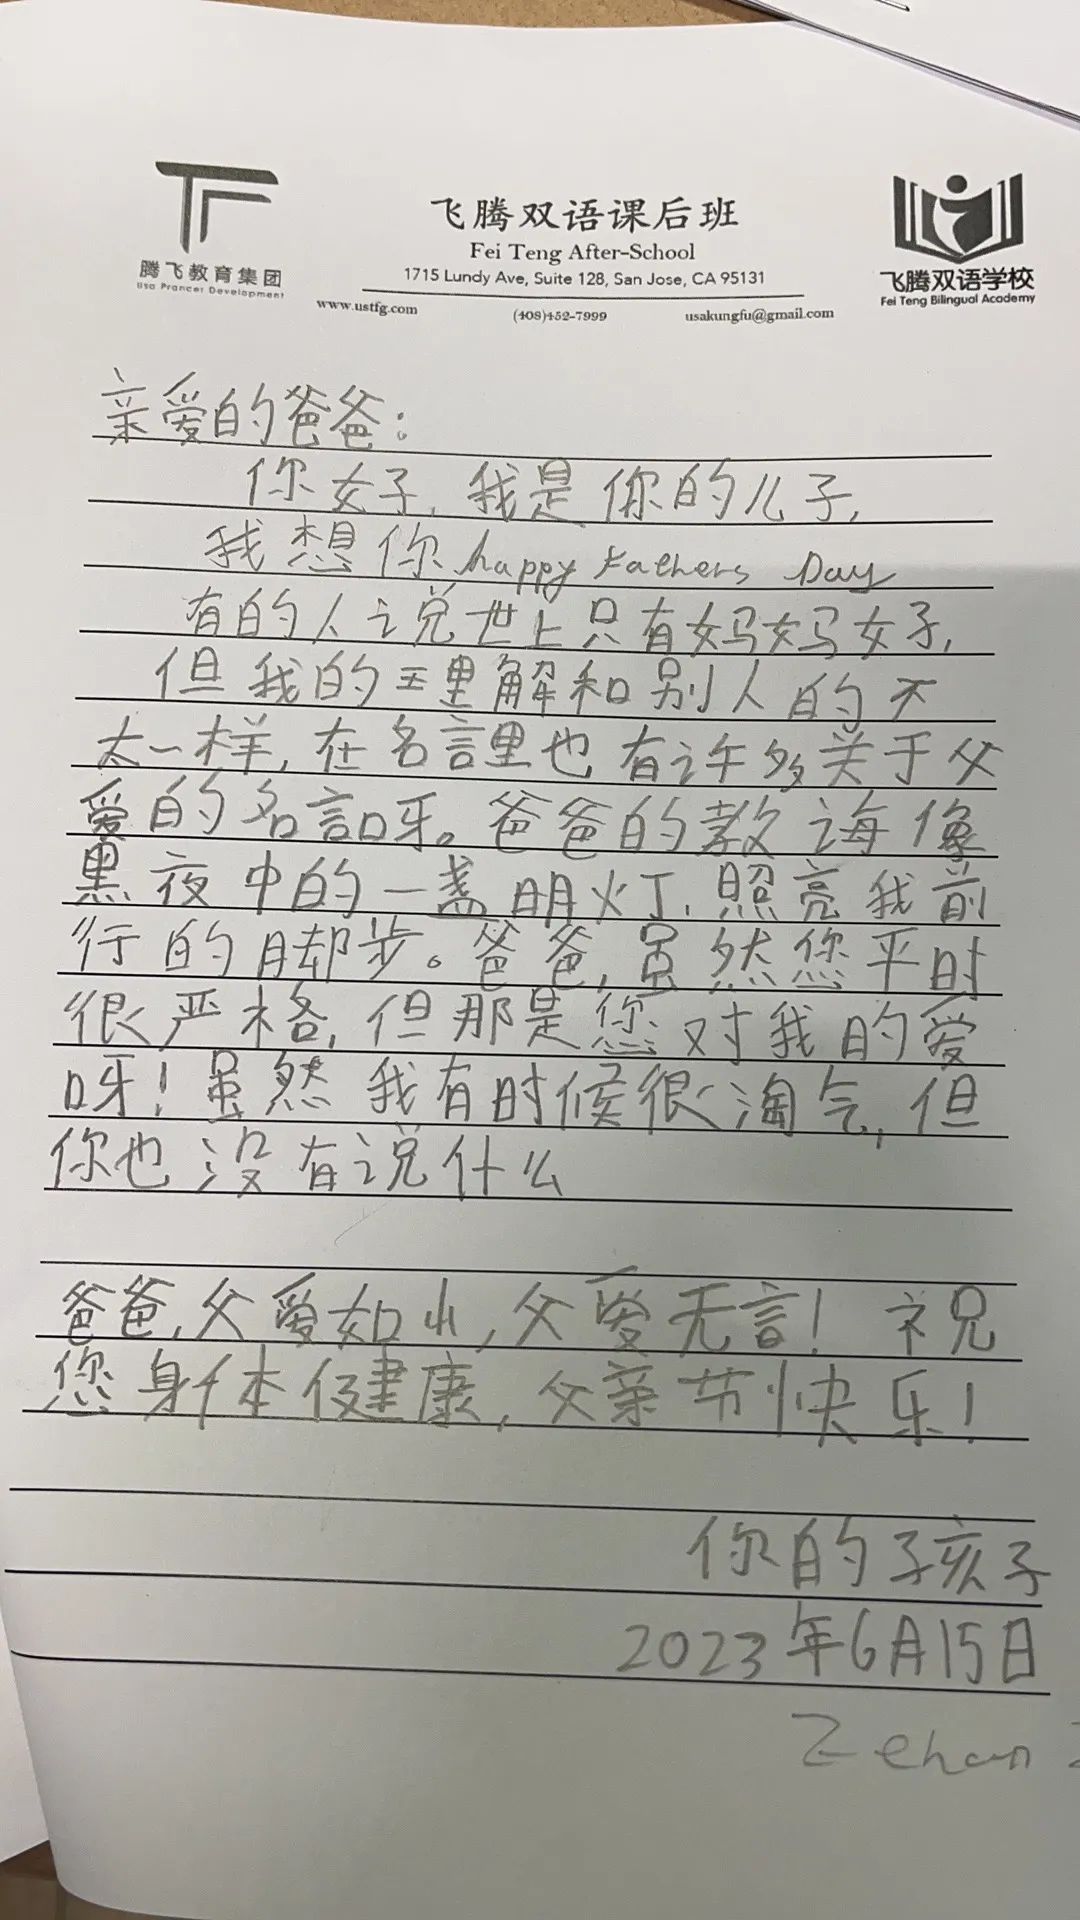 腾飞教育集团
Usa Prancer Development
飞腾双语课后班
Fei Teng After-School
1715 Lundy Ave, Suite 128, San Jose, CA 95131
www.ustfg.com
(408)452-7999
usakungfu@gmail.com
飞腾双语学校
Fei Teng Bilingual Academy
亲爱的爸爸:
你好,我是你的儿子,
我想你happy Fathers Day
有的人说世上只有妈妈好,
但我的理解和别人的不
太一样,在名言里也有许多关于父
爱的名言呀。爸爸的教诲像
黑夜中的一盏明灯,照亮我前
行的脚步。爸爸,虽然您平时
很严格,但那是您对我的爱
呀!虽然我有时候很淘气,但
你也没有说什么
爸爸,父爱如山,父爱无言!祝
您身体健康,父亲节快乐!
你的孩子
2023年6月15日
Zehan